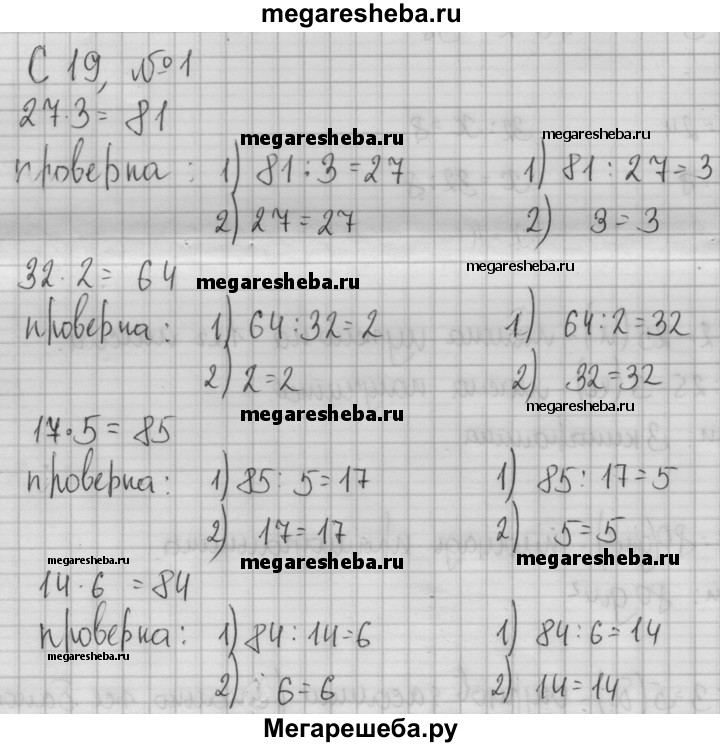 megaresheba.ru
С 19, №1
27·3= 81
megaresheba.ru megaresheba.ru
проверка: 1) 81:3=27 1) 81:27=3
2) 27=27 2) 3=3
32·2= 64 megaresheba.ru megaresheba.ru
проверка: 1) 64:32=2 1) 64:2=32
2) 2=2 2) 32=32
megaresheba.ru megaresheba.ru
17·5= 85
проверка: 1) 85:5=17 1) 85:17=5
2) 17=17 2) 5=5
megaresheba.ru megaresheba.ru megaresheba.ru
14·6 =84
проверка: 1) 84:14=6 1) 84:6=14
megaresheba.ru
2) 6=6 2) 14=14
Мегарешеба.ру